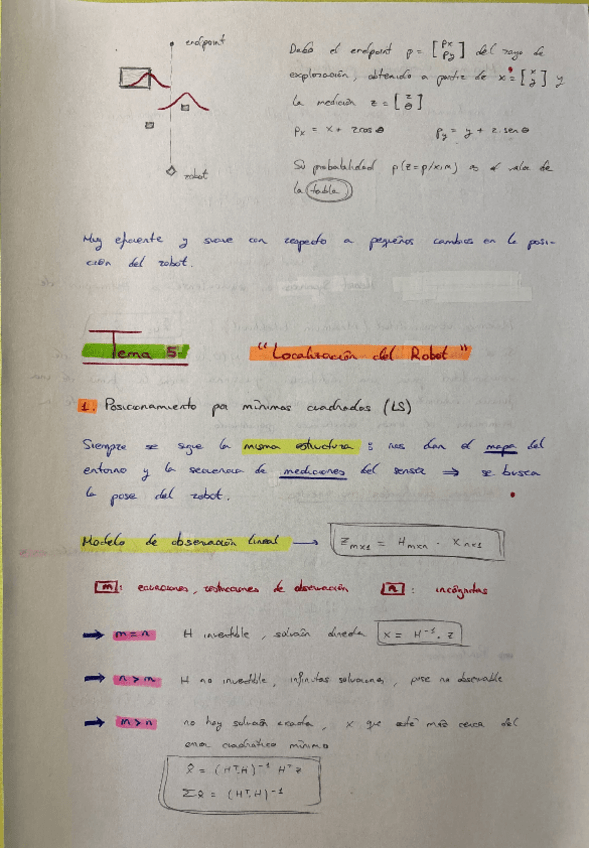 endpoint
robot
Dado el endpoint p = [px py] del rayo de
exploración, obtenido a partir de x = [x y] y
la medición z = [z θ]
px = x + z cos θ    py = y + z · sen θ
Su probabilidad p(z=p/x,m) es el valor de
la tabla
Muy eficiente y suave con respecto a pequeños cambios en la posi-
ción del robot.
Tema 5    "Localización del Robot"
1. Posicionamiento por mínimos cuadrados (LS)
Siempre se sigue la misma estructura : nos dan el mapa del
entorno y la secuencia de mediciones del sensor ⇒ se busca
la pose del robot.
Modelo de observación lineal → Zmx1 = Hmxn · Xnx1
m : ecuaciones, restricciones de observación    n : incógnitas
→ m = n    H invertible, solución directa    x = H⁻¹ · z
→ n > m    H no invertible, infinitas soluciones, pose no observable
→ m > n    no hay solución exacta, x que esté más cerca del
error cuadrático mínimo
x̂ = (Hᵀ·H)⁻¹ Hᵀ z
Σx̂ = (Hᵀ·H)⁻¹